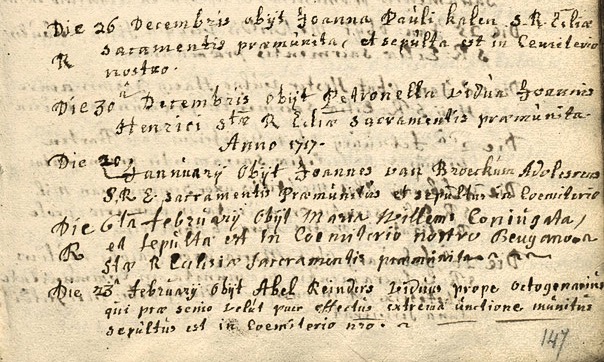 Die 26 Decembris obijt Joanna Pauli kalen S. R. Ecliæ
R sacramentis præmunita, et sepulta est in Cemiterio
nostro.
Die 30a Decembris obijt Petronella vidua Joannis
Henrici Stæ R Ecliæ sacramentis præmunita
Anno 1717.
Die 20 Jannuarij obijt Joannes van Broeckum Adolescens
S. R E. sacramentis Præmunitus et sepultus in Coemiterio
Die 6ta february obijt Maria Neillems Coniugata,
R et sepulta est in Coemiterio nostro
Stæ R Eclisiæ saccramentis præmunita
Die 23a february obijt Abel Reinders viduus prope octogenarius
qui præ senio velut puer effectus extrema unctione munitus
sepultus est in Coemiterio nro.
147